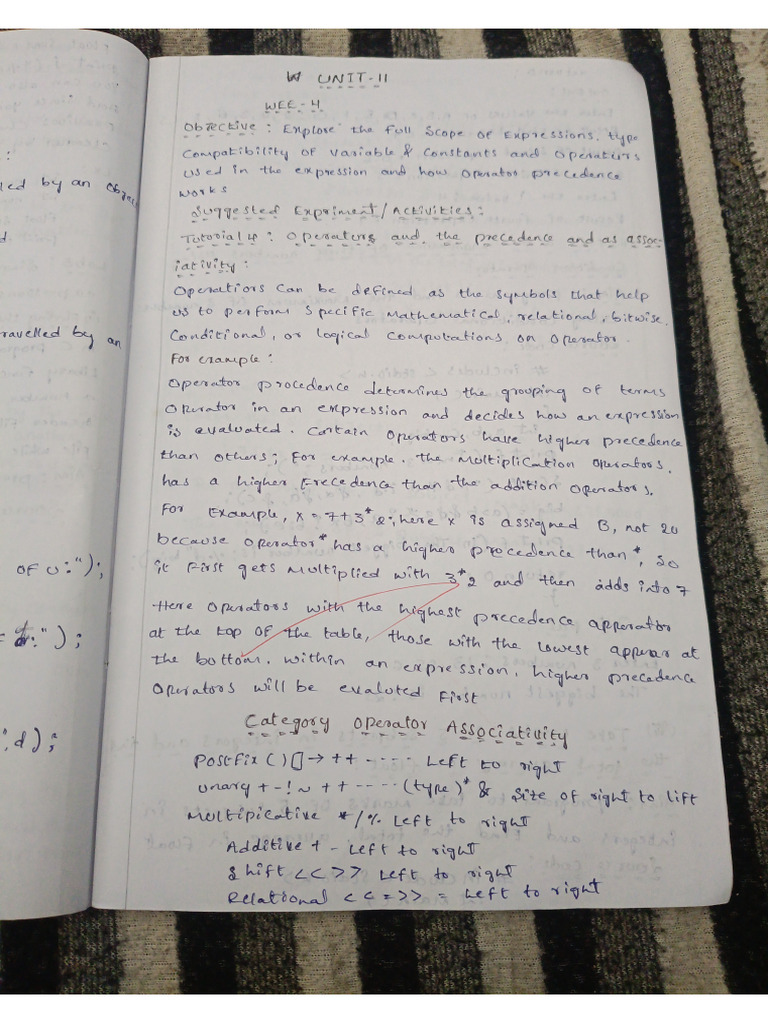 led by an object
ravelled by an
of u:");
= d:");
",d);
UNIT-II
WEE-4
Objective : Explore the full Scope of Expressions, type
Compatibility of variable & Constants and Operaturs
used in the expression and how operator precedence
works
Suggested Expriment/Activities :
Tutorial 4 : Operators and, the precedence and as assoc-
iativity :
Operatiors can be defined as the symbols that help
us to perform Specific Mathematical, relational, bitwise,
Conditional, or logical Computations on operator.
For example :
Operator procedence determines the grouping of terms
Operator in an expression and decides how an expression
is evaluated. Certain Operators have higher precedence
than others; for example, the Multiplication operators,
has a higher Frecedence than the addition operators.
For Example, x = 7+3*2; here x is assigned B, not 20
because operator * has a higher precedence than *, so
it first gets Multiplied with 3*2 and then adds into 7
Here Operators with the highest precedence apperator
at the top of the table, those with the lowest appear at
the bottom. within an expression, higher precedence
Operators will be evaluted First
Category Operator Associativity
Postfix () [] → ++ ---- Left to right
Unary + - ! ~ ++ ---- (type) * & size of right to lift
Multipicative * / % Left to right
Additive + - Left to right
Shift << >> Left to right
Relational < < = > > = Left to right